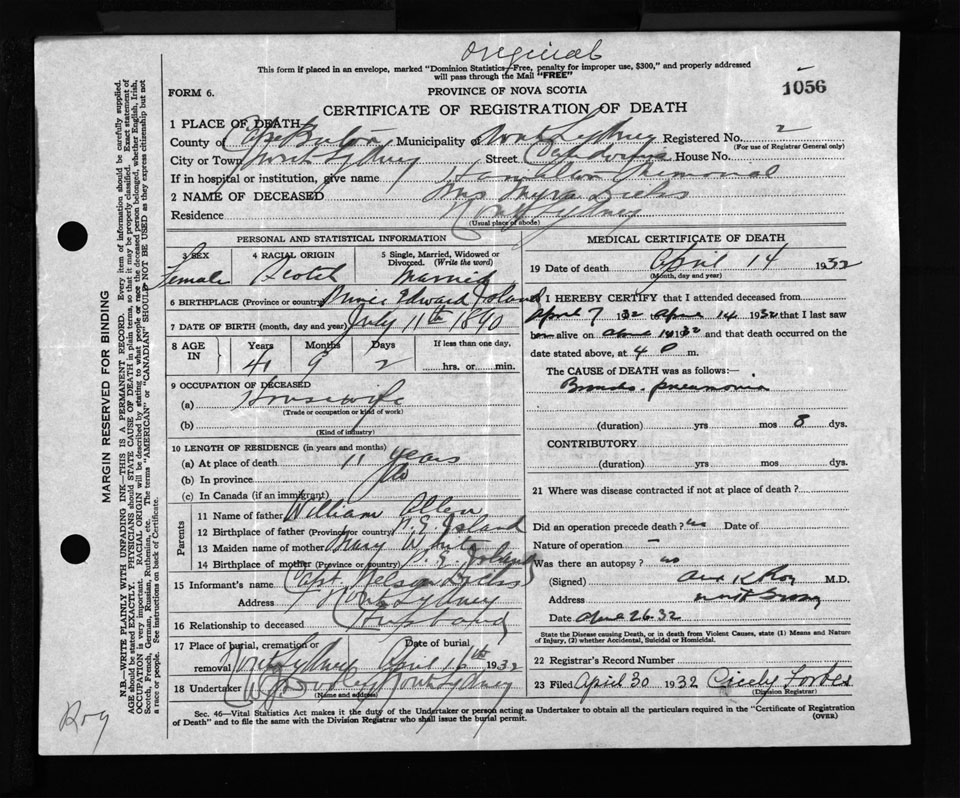 Original
This form if placed in an envelope, marked "Dominion Statistics—Free, penalty for improper use, $300," and properly addressed
will pass through the Mail "FREE"
1056
FORM 6.
PROVINCE OF NOVA SCOTIA
CERTIFICATE OF REGISTRATION OF DEATH
1 PLACE OF DEATH—
County of Cape Breton Municipality of North Sydney Registered No. 2
(For use of Registrar General only)
City or Town North Sydney Street House No.
If in hospital or institution, give name Hamilton Memorial
2 NAME OF DECEASED Mrs Myra
Residence North Sydney
(Usual place of abode)
PERSONAL AND STATISTICAL INFORMATION
3 SEX 4 RACIAL ORIGIN 5 Single, Married, Widowed or
Divorced. (Write the word)
Female Scotch Married
6 BIRTHPLACE (Province or country) Prince Edward Island
7 DATE OF BIRTH (month, day and year) July 11th 1890
8 AGE IN Years Months Days If less than one day,
41 9 2 hrs. or min.
9 OCCUPATION OF DECEASED
(a) Housewife
(Trade or occupation or kind of work)
(b)
(Kind of industry)
10 LENGTH OF RESIDENCE (in years and months)
(a) At place of death 11 years
(b) In province do
(c) In Canada (if an immigrant)
Parents
11 Name of father William Allen
12 Birthplace of father (Province or country) P.E. Island
13 Maiden name of mother Mary White
14 Birthplace of mother (Province or country) P.E. Island
15 Informant's name Capt. Nelson
Address North Sydney
16 Relationship to deceased Husband
17 Place of burial, cremation or Date of burial
removal North Sydney April 16th 1932
18 Undertaker North Sydney
(Name and address)
MEDICAL CERTIFICATE OF DEATH
19 Date of death April 14 1932
(Month, day and year)
I HEREBY CERTIFY that I attended deceased from
April 7 1932 to April 14 1932 that I last saw
her alive on April 14 1932 and that death occurred on the
date stated above, at 4 P m.
The CAUSE of DEATH was as follows:—
Broncho-pneumonia
(duration) yrs mos 8 dys.
CONTRIBUTORY
(duration) yrs. mos. dys.
21 Where was disease contracted if not at place of death?
Did an operation precede death? no Date of
Nature of operation —
Was there an autopsy? no
(Signed) Roy M.D.
Address North Sydney
Date April 26 32
State the Disease causing Death, or in death from Violent Causes, state (1) Means and Nature
of Injury, (2) whether Accidental, Suicidal or Homicidal.
22 Registrar's Record Number
23 Filed April 30 1932 Cicely Forbes
(Division Registrar)
Sec. 46—Vital Statistics Act makes it the duty of the Undertaker or person acting as Undertaker to obtain all the particulars required in the "Certificate of Registration
of Death" and to file the same with the Division Registrar who shall issue the burial permit.
(OVER)
MARGIN RESERVED FOR BINDING
N.B.—WRITE PLAINLY WITH UNFADING INK—THIS IS A PERMANENT RECORD. Every item of information should be carefully supplied.
AGE should be stated EXACTLY. PHYSICIANS should STATE CAUSE OF DEATH in plain terms, so that it may be properly classified. Exact statement of
OCCUPATION is very important. RACIAL ORIGIN will be described by stating to what people or race the deceased person belonged, whether English, Irish,
Scotch, French, German, Russian, Ruthenian, etc. The terms "AMERICAN" or "CANADIAN" SHOULD NOT BE USED as they express citizenship but not
a race or people. See instructions on back of Certificate.
Roy